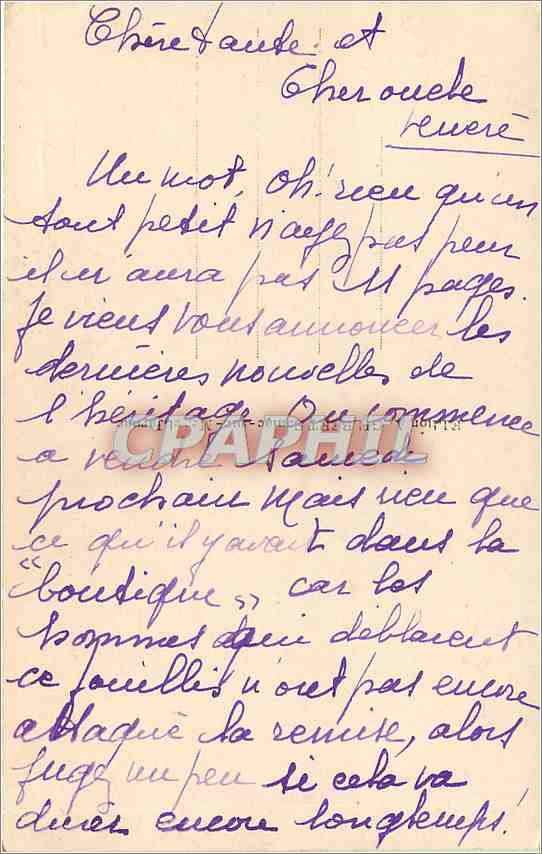 Chère tante et
Cher oncle
vénéré
Un mot, oh! rien qu'un
tout petit n'ayez pas peur
il n'aura pas 11 pages.
Je viens vous annoncer les
dernières nouvelles de
l'héritage. On commence
CPARHIL
a vendre samedi
prochain mais rien que
ce qu'il y avait dans la
"boutique" car les
hommes qui déblaient
ce fouillis n'ont pas encore
attaqué la remise, alors
jugez un peu si cela va
durer encore longtemps!